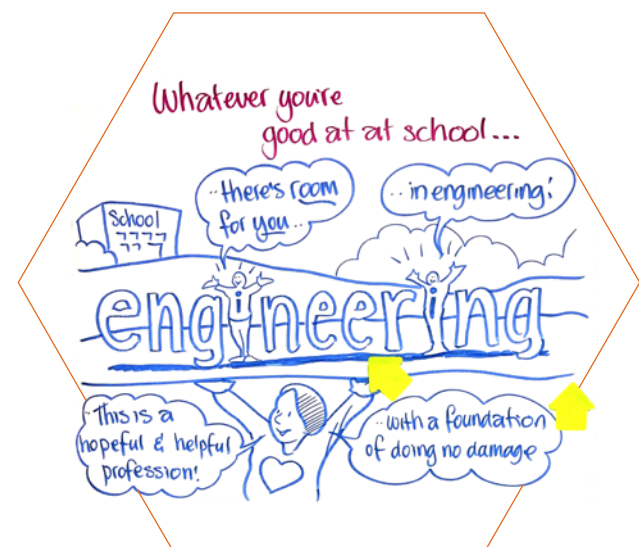 Whatever you're
good at at school...
..there's room
for you..
..in engineering!
School
engineering
"This is a
hopeful & helpful
profession!
..with a foundation
of doing no damage